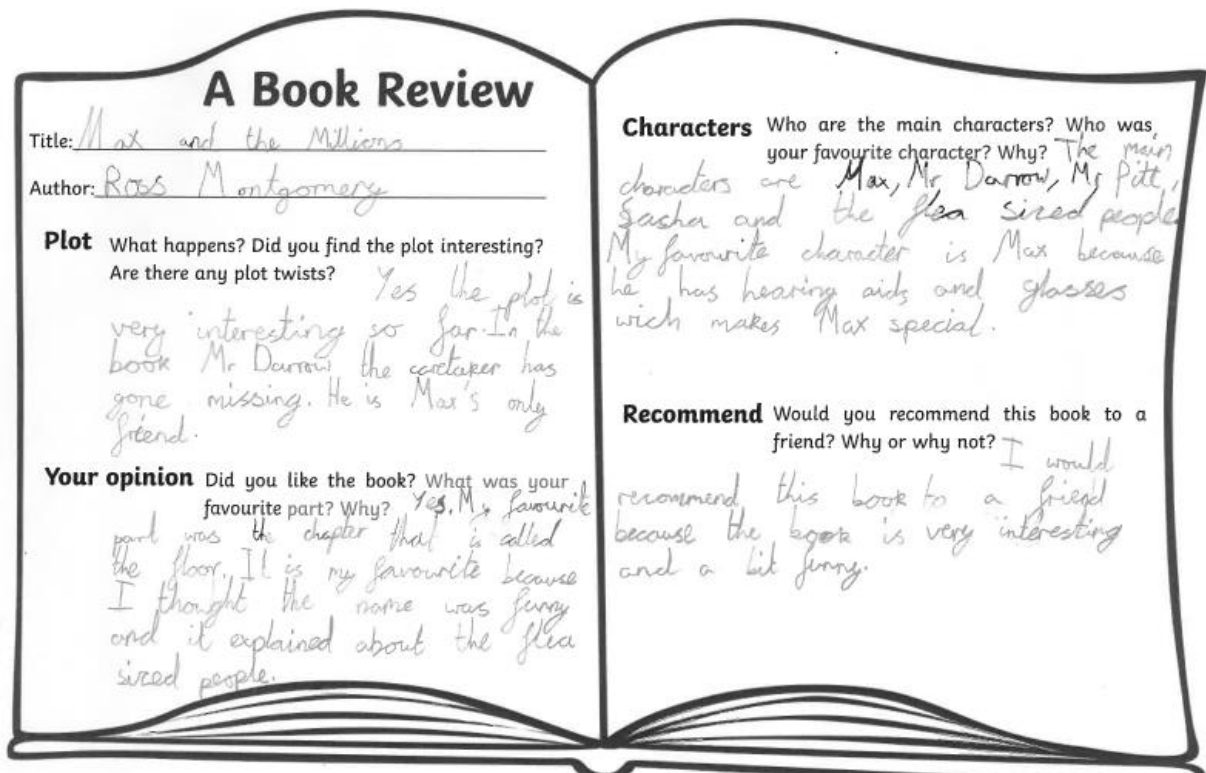 A Book Review
Title: Max and the Millions
Author: Ross Montgomery
Plot What happens? Did you find the plot interesting?
Are there any plot twists?
Yes the plot is
very interesting so far. In the
book Mr Darrow the caretaker has
gone missing. He is Max's only
friend.
Your opinion Did you like the book? What was your
favourite part? Why? Yes. My favourite
part was the chapter that is called
the floor. It is my favourite because
I thought the name was funny
and it explained about the flea
sized people.
Characters Who are the main characters? Who was
your favourite character? Why? The main
characters are Max, Mr Darrow, Mr Pitt,
Sasha and the flea sized people
My favourite character is Max because
he has hearing aids and glasses
wich makes Max special.
Recommend Would you recommend this book to a
friend? Why or why not? I would
recommend this book to a friend
because the book is very interesting
and a bit funny.